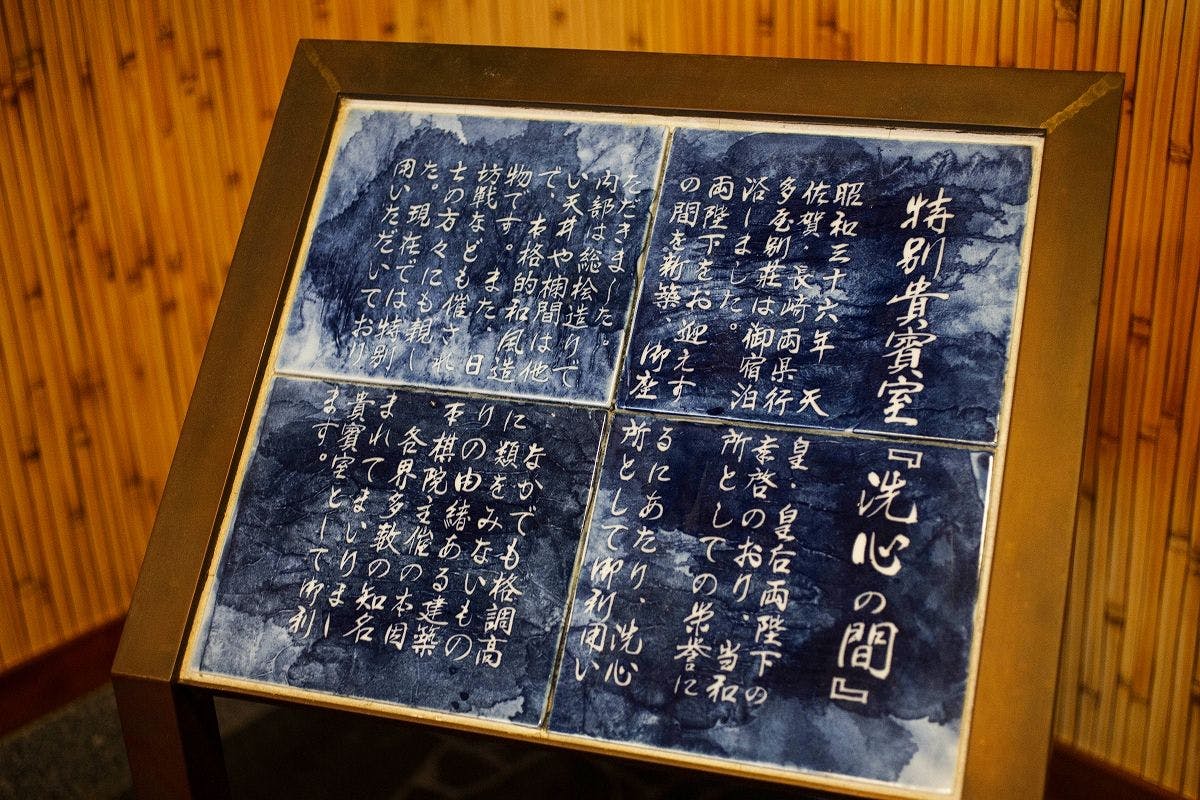 特別貴賓室『洗心の間』
昭和三十六年 天皇・皇后両陛下の
佐賀・長崎両県行幸啓のおり、当和
多屋別荘は御宿泊所としての栄誉に
浴しました。
両陛下をお迎えするにあたり、洗心
の間を新築 御座所として御利用い
ただきました。
内部は総桧造りで、なかでも格調高
い天井や欄間は他に類をみないもの
で、本格的和風造りの由緒ある建築
物です。また、日本棋院主催の本因
坊戦なども催され、各界多数の知名
士の方々にも親しまれてまいりまし
た。現在では特別貴賓室として御利
用いただいております。